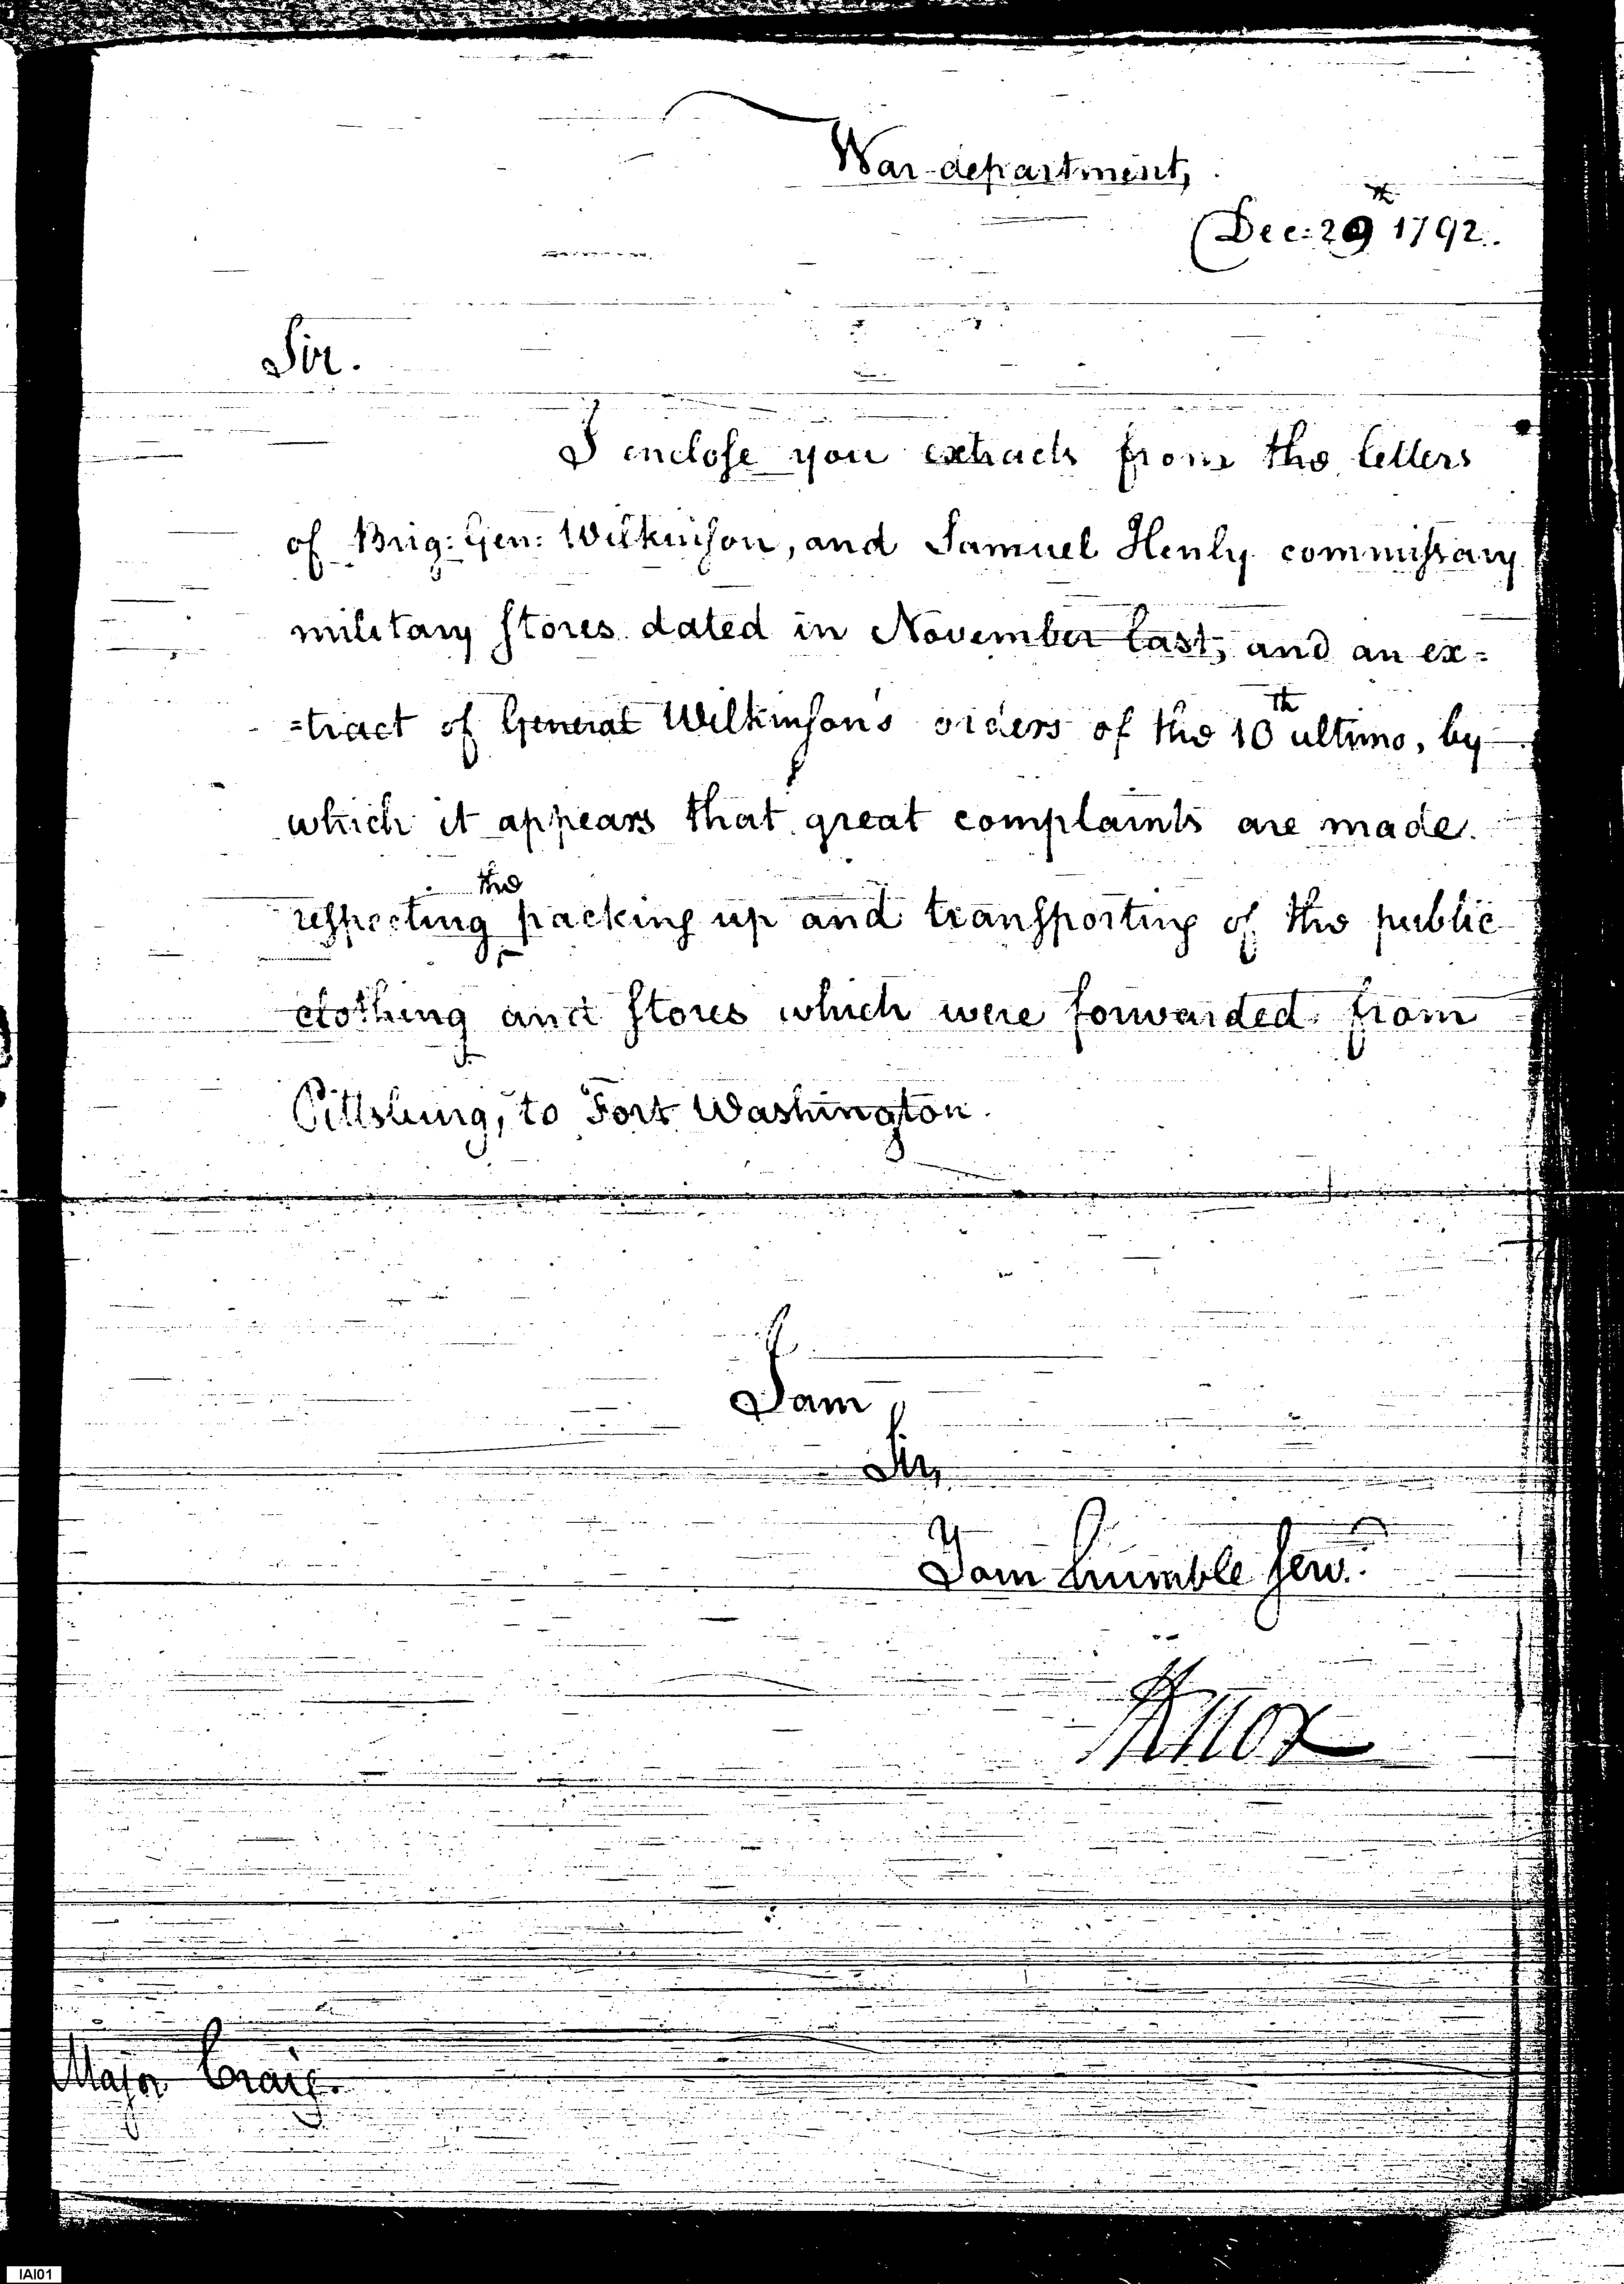 War department,
Dec: 29th 1792.
Sir.
I enclose you extracts from the letters
of Brig: Gen: Wilkinson, and Samuel Henly commissary
military stores dated in November last, and an ex=
=tract of General Wilkinson's orders of the 10th ultimo, by
which it appears that great complaints are made
respecting the packing up and transporting of the public
clothing and stores which were forwarded from
Pittsburg, to Fort Washington.
I am
Sir,
Your humble serv.:
HKnox
Major Craig.
IAI01